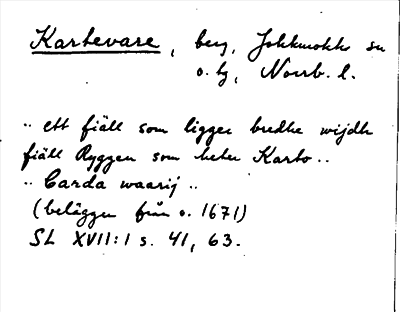 Kartevare, berg, Jokkmokks sn
o. tg, Norrb. l.
.. ett fiäll som ligger bredhe wijdh
fiäll Ryggen som heter Karto..
.. Carda waarij..
(belägg från o. 1671)
SL XVII:1 s. 41, 63.